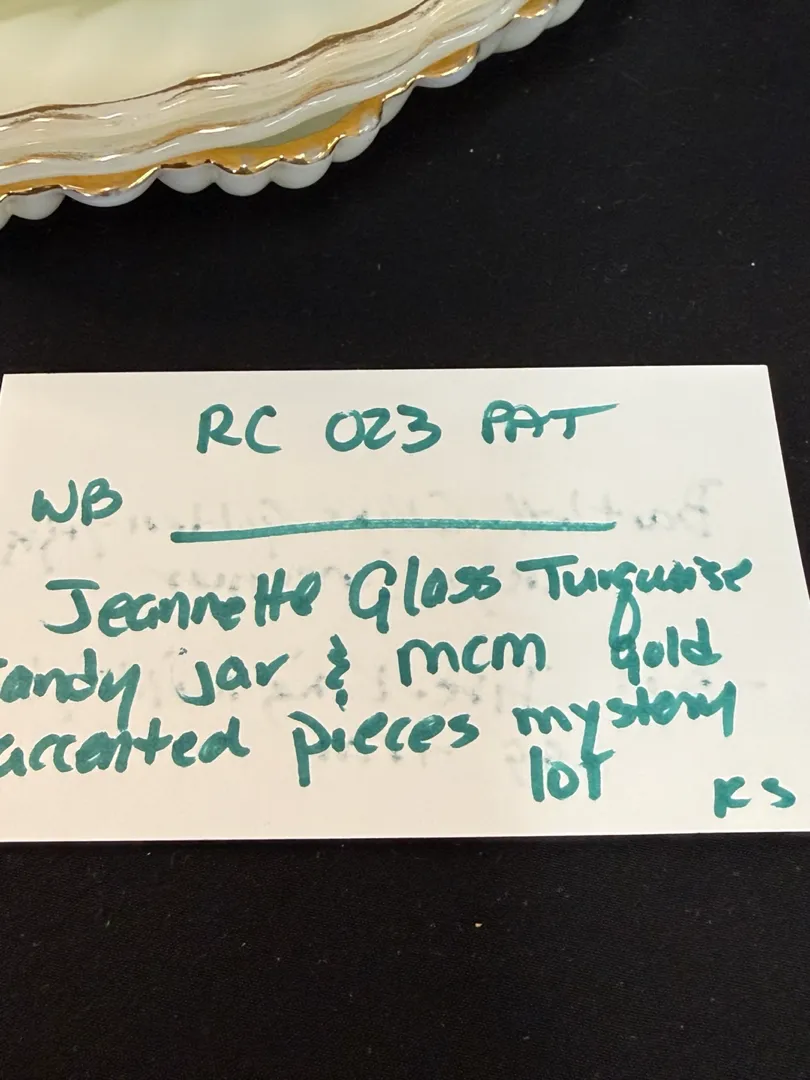 RC 023 PAT
WB
Jeannette Glass Turquoise
candy jar & mcm gold
accented pieces mystery
lot
KS